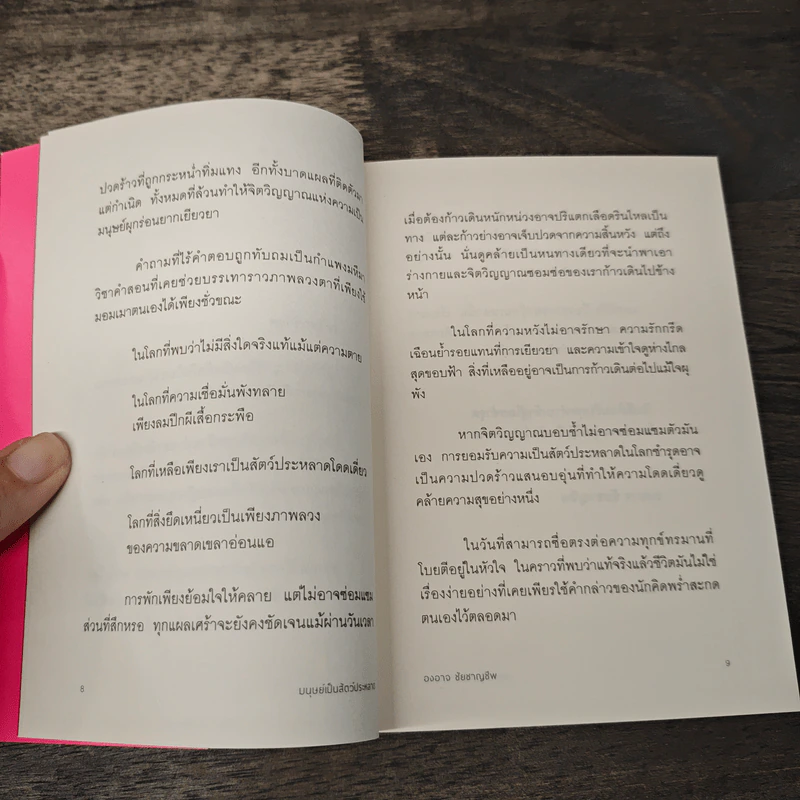 ปวดร้าวที่ถูกกระหน่ำทิ่มแทง อีกทั้งบาดแผลที่ติดตัวมา
แต่กำเนิด ทั้งหมดที่ล้วนทำให้จิตวิญญาณแห่งความเป็น
มนุษย์ผุกร่อนยากเยียวยา
คำถามที่ไร้คำตอบถูกทับถมเป็นกำแพงมหึมา
วิชาคำสอนที่เคยช่วยบรรเทาราวภาพลวงตาที่เพียงใช้
มอมเมาตนเองได้เพียงชั่วขณะ
ในโลกที่พบว่าไม่มีสิ่งใดจริงแท้แม้แต่ความตาย
ในโลกที่ความเชื่อมั่นพังทลาย
เพียงลมปีกผีเสื้อกระพือ
โลกที่เหลือเพียงเราเป็นสัตว์ประหลาดโดดเดี่ยว
โลกที่สิ่งยึดเหนี่ยวเป็นเพียงภาพลวง
ของความขลาดเขลาอ่อนแอ
การพักเพียงย้อมใจให้คลาย แต่ไม่อาจซ่อมแซม
ส่วนที่สึกหรอ ทุกแผลเศร้าจะยังคงชัดเจนแม้ผ่านวันเวลา
8
มนุษย์เป็นสัตว์ประหลาด
เมื่อต้องก้าวเดินหนักหน่วงอาจปริแตกเลือดรินไหลเป็น
ทาง แต่ละก้าวย่างอาจเจ็บปวดจากความสิ้นหวัง แต่ถึง
อย่างนั้น นั่นดูคล้ายเป็นหนทางเดียวที่จะนำพาเอา
ร่างกายและจิตวิญญาณซอมซ่อของเราก้าวเดินไปข้าง
หน้า
ในโลกที่ความหวังไม่อาจรักษา ความรักกรีด
เฉือนย้ำรอยแทนที่การเยียวยา และความเข้าใจดูห่างไกล
สุดขอบฟ้า สิ่งที่เหลืออยู่อาจเป็นการก้าวเดินต่อไปแม้ใจผุ
พัง
หากจิตวิญญาณบอบช้ำไม่อาจซ่อมแซมตัวมัน
เอง การยอมรับความเป็นสัตว์ประหลาดในโลกชำรุดอาจ
เป็นความปวดร้าวแสนอบอุ่นที่ทำให้ความโดดเดี่ยวดู
คล้ายความสุขอย่างหนึ่ง
ในวันที่สามารถซื่อตรงต่อความทุกข์ทรมานที่
โบยตีอยู่ในหัวใจ ในคราวที่พบว่าแท้จริงแล้วชีวิตมันไม่ใช่
เรื่องง่ายอย่างที่เคยเพียรใช้คำกล่าวของนักคิดพร่ำสะกด
ตนเองไว้ตลอดมา
องอาจ ชัยชาญชีพ
9